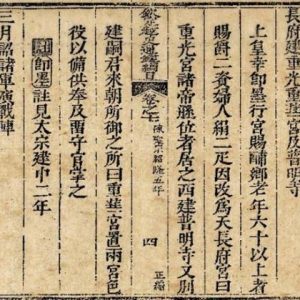 長府建重光宮普明寺
上皇幸即墨行宮賜酺鄉老年六十以上者
賜爵二資婦人絹二疋因改爲天長府宮曰
重光宮諸帝遜位者居之西建普明寺又別
欽定越史通鑑綱目 卷之七 陳聖宗紹隆五年 四 正編
建嗣君來朝所御之所曰重華宮置兩宮色
役以備供奉及留守官掌之
即墨註見太宗建中二年
三月詔諸軍演戰陣